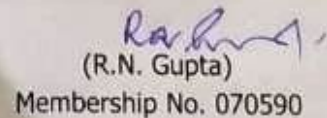 (R.N. Gupta)
Membership No. 070590